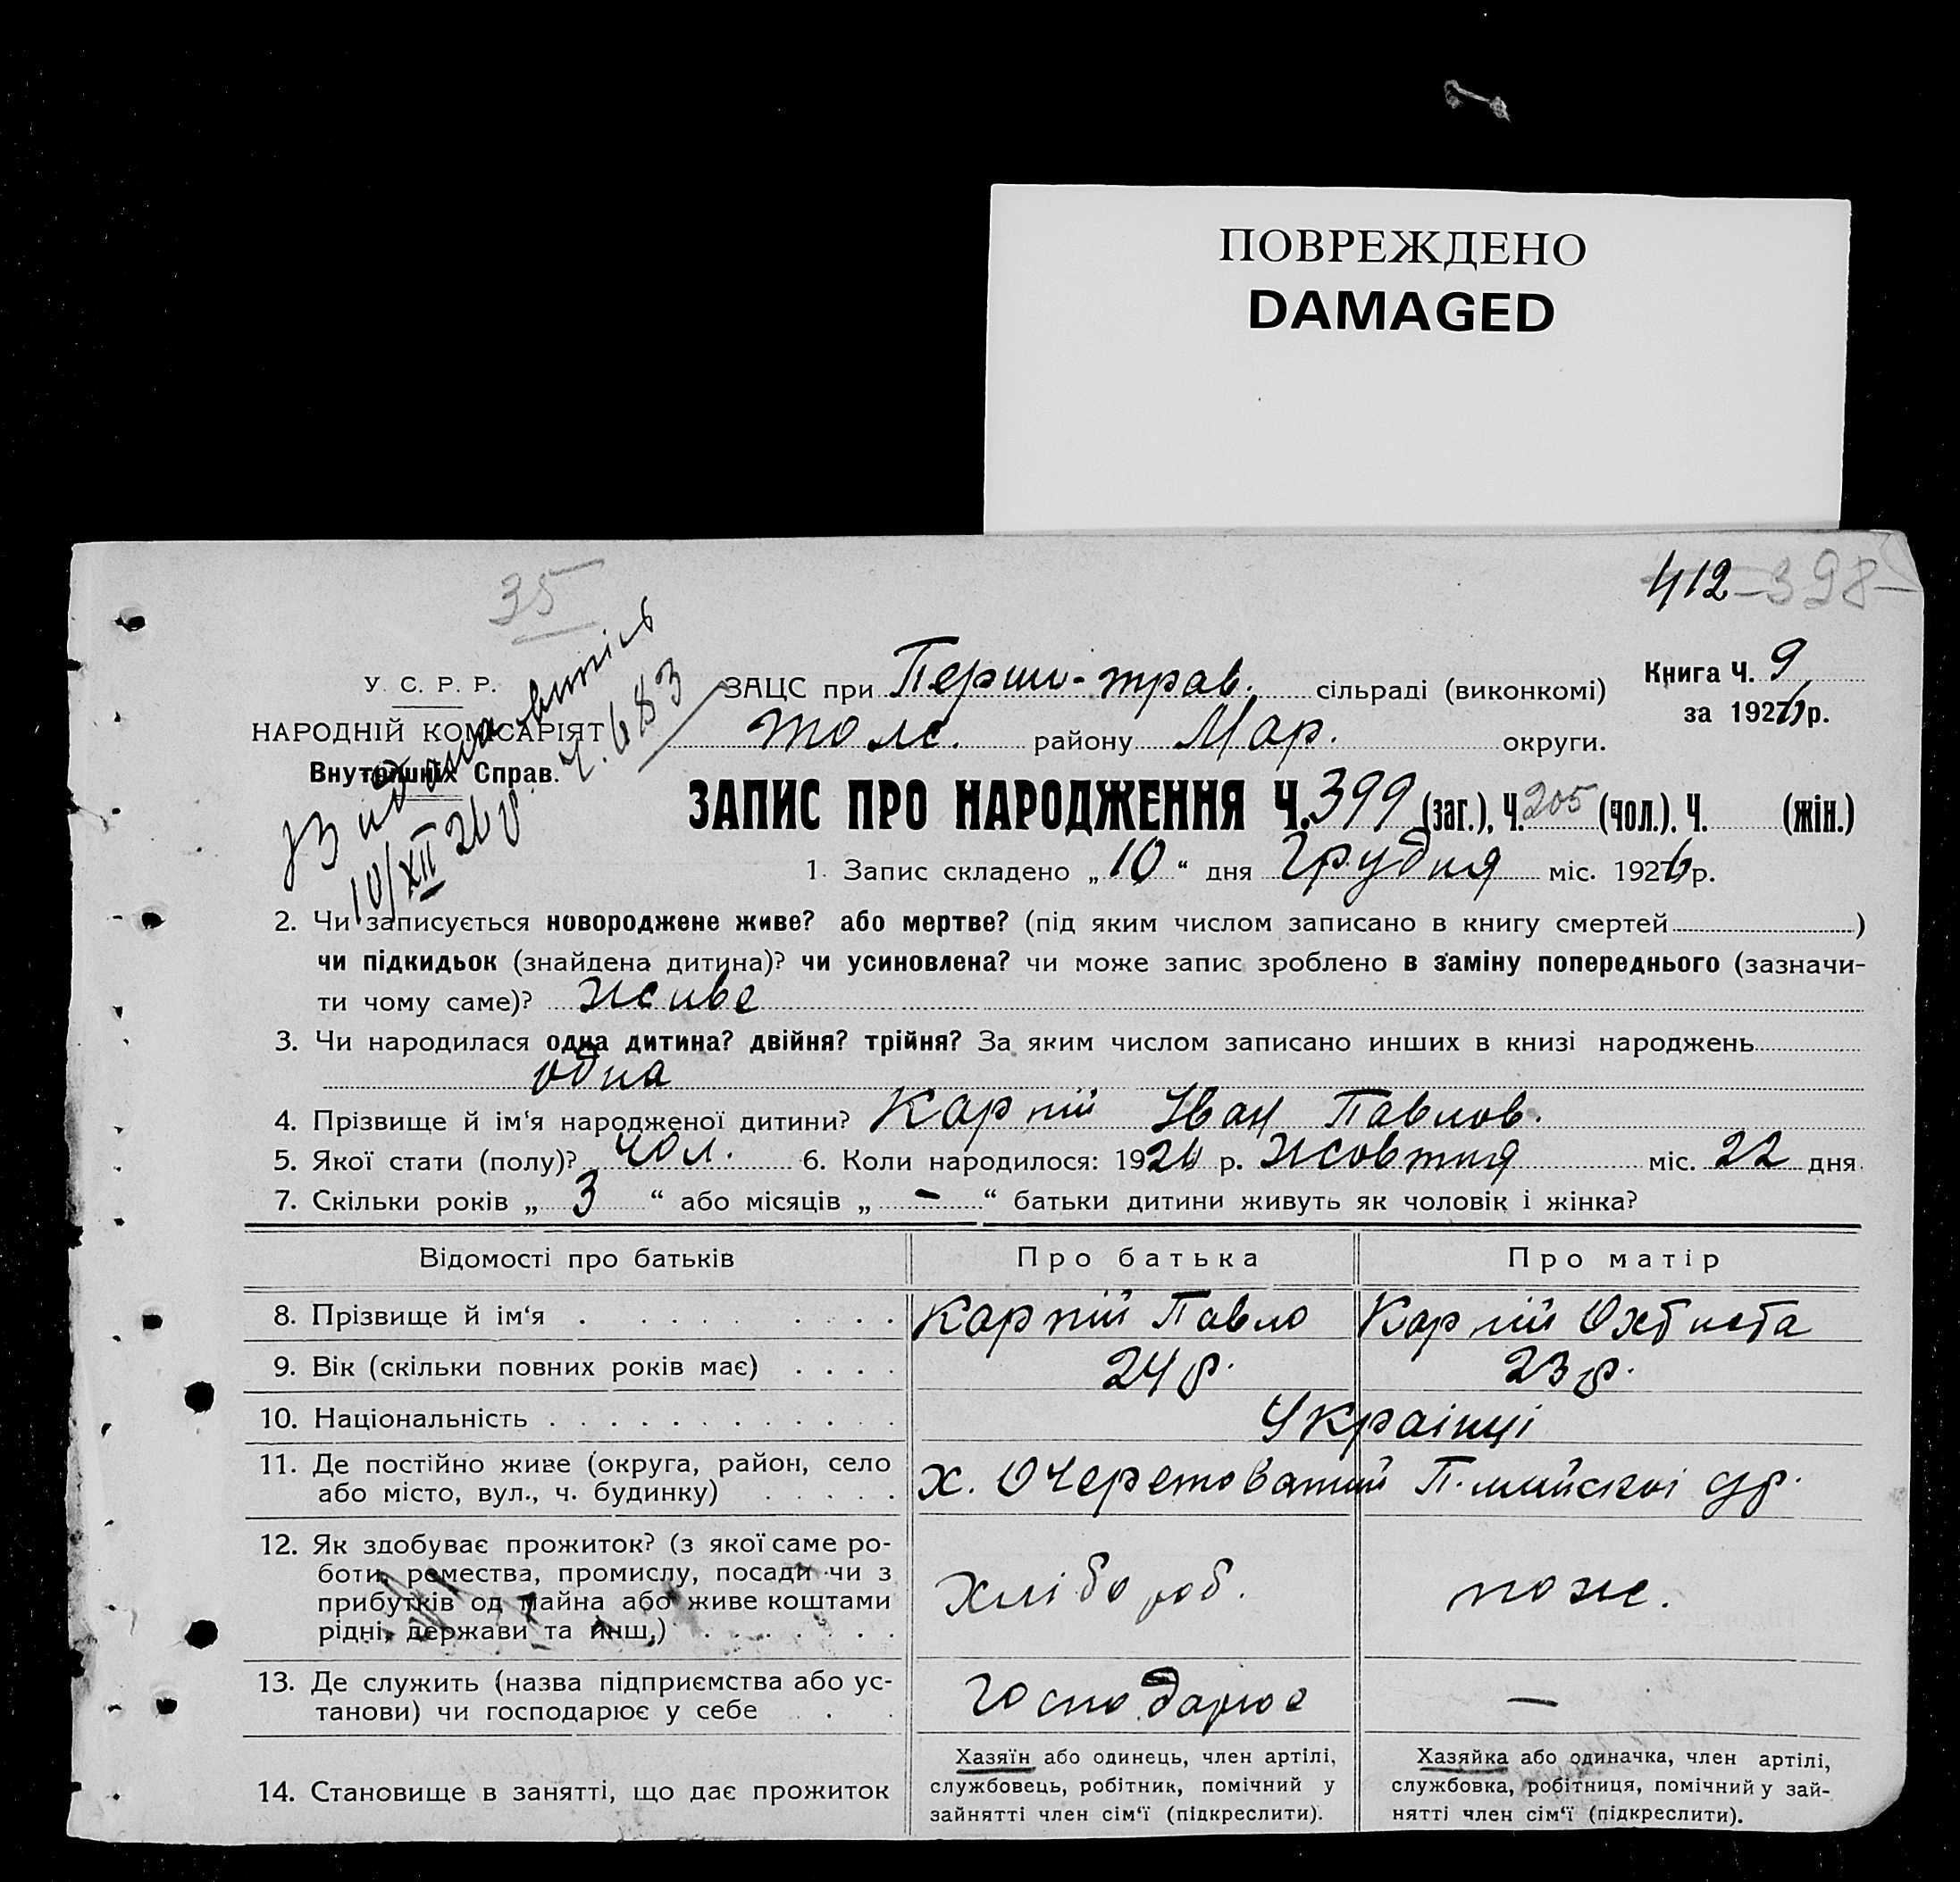 ПОВРЕЖДЕНО
DAMAGED
412 - 398 -
35
У. С. Р. Р.
НАРОДНІЙ КОМІСАРІЯТ
Внутрішніх Справ.
Видана виписль
Ч. 683
10/XII 26 р.
ЗАЦС при Перши-трав. сільраді (виконкомі)
Книга Ч. 9
за 1926 р.
толс. району Мар. округи.
ЗАПИС ПРО НАРОДЖЕННЯ Ч. 399 (заг.), Ч. 205 (чол.). Ч. (жін.)
1. Запис складено „ 10 “ дня Грудня міс. 1926 р.
2. Чи записується новороджене живе? або мертве? (під яким числом записано в книгу смертей )
чи підкидьок (знайдена дитина)? чи усиновлена? чи може запис зроблено в заміну попереднього (зазначи-
ти чому саме)? живе
3. Чи народилася одна дитина? двійня? трійня? За яким числом записано инших в книзі народжень
одна
4. Прізвище й ім‘я народженої дитини? Карпій Іван Павлов.
5. Якої стати (полу)? чол. 6. Коли народилося: 1926 р. жовтня міс. 22 дня
7. Скільки років „ 3 “ або місяців „ — “ батьки дитини живуть як чоловік і жінка?
Відомості про батьків Про батька Про матір
8. Прізвище й ім‘я Карпій Павло Карпій
9. Вік (скільки повних років має) 24 р. 23 р.
10. Національність Українці
11. Де постійно живе (округа, район, село
або місто, вул., ч. будинку)
х. Очеретоватий П-майскоі с/р.
12. Як здобуває прожиток? (з якої саме ро-
боти, ремества, промислу, посади чи з
прибутків од майна або живе коштами
рідні, держави та инш.)
хлібороб. тож.
13. Де служить (назва підприємства або ус-
танови) чи господарює у себе
господарює —
14. Становище в занятті, що дає прожиток
Хазяїн або одинець, член артілі,
службовець, робітник, помічний у
зайнятті член сім‘ї (підкреслити).
Хазяйка або одиначка, член артілі,
службовка, робітниця, помічний у зай-
нятті член сім‘ї (підкреслити).